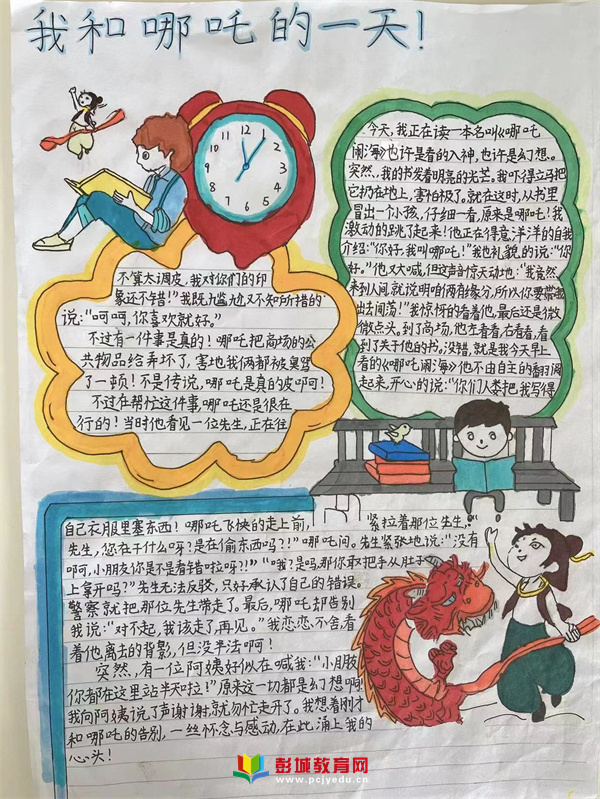 我和哪吒的一天！
12
1
2
3
4
5
6
7
8
9
10
11
今天，我正在读一本名叫《哪吒
闹海》也许是看的入神，也许是幻想。
突然，我的书发着明亮的光芒。我吓得立马把
它扔在地上，害怕极了。就在这时，从书里
冒出一个小孩，仔细一看，原来是哪吒！我
激动的跳了起来！他正在得意洋洋的自我
介绍：“你好，我叫哪吒！”我也礼貌的说：“你
好。”他又大喊，但这声音惊天动地：“我竟然
来到人间，就说明咱俩有缘分，所以你要带我
出去闲荡！”我惊怀的看着他，最后还是微
微点头。到了商场，他左看看，右看看，看
到了关于他的书。没错，就是我今天早上
看的《哪吒闹海》他不由自主的翻阅
起来，开心的说：“你们人类把我写得
不算太调皮，我对你们的印
象还不错！”我既尴尬又不知所措的
说：“呵呵，你喜欢就好。”
不过有一件事是真的！哪吒把商场的公
共物品给弄坏了，害地我俩都被臭骂
了一顿！不是传说，哪吒是真的皮啊！
不过在帮忙这件事，哪吒还是很在
行的！当时他看见一位先生，正在往
自己衣服里塞东西！哪吒飞快的走上前，紧拉着那位先生，“
先生，您在干什么呀？是在偷东西吗？！”哪吒问。先生紧张地说：“没有
啊呵，小朋友你是不是看错啦呀？！”“哦？是吗，那你敢把手从肚子
上拿开吗？”先生无法反驳，只好承认了自己的错误。
警察就把那位先生带走了。最后，哪吒却告别
我说：“对不起，我该走了，再见。”我恋恋不舍，看
着他离去的背影，但没半法啊！
突然，有一位阿姨好似在喊我：“小朋友
你都在这里站半天啦！”原来这一切都是幻想啊！
我向阿姨说了声谢谢，就匆忙走开了。我想着刚才
和哪吒的告别，一丝怀念与感动，在此涌上我的
心头！
彭城教育网
www.pcjyedu.cn